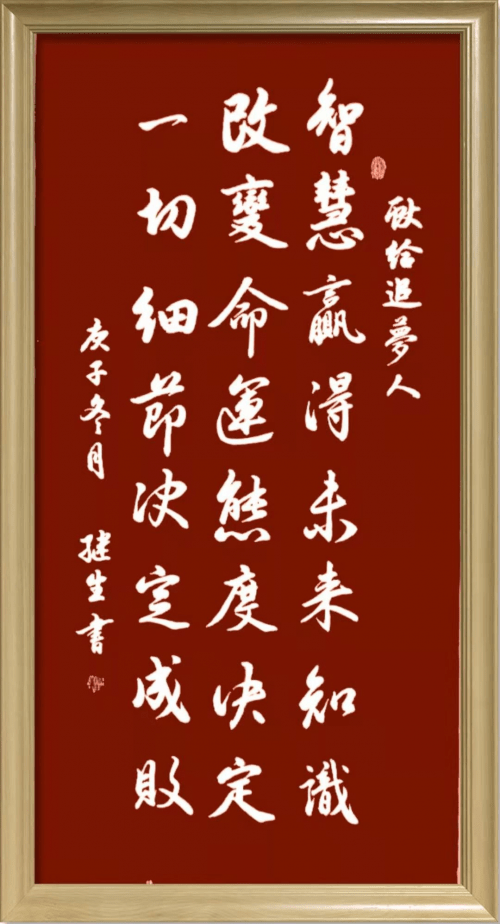 獻给追夢人
智慧贏得未来知識
改變命運態度决定
一切细節决定成敗
庚子冬月 继生書